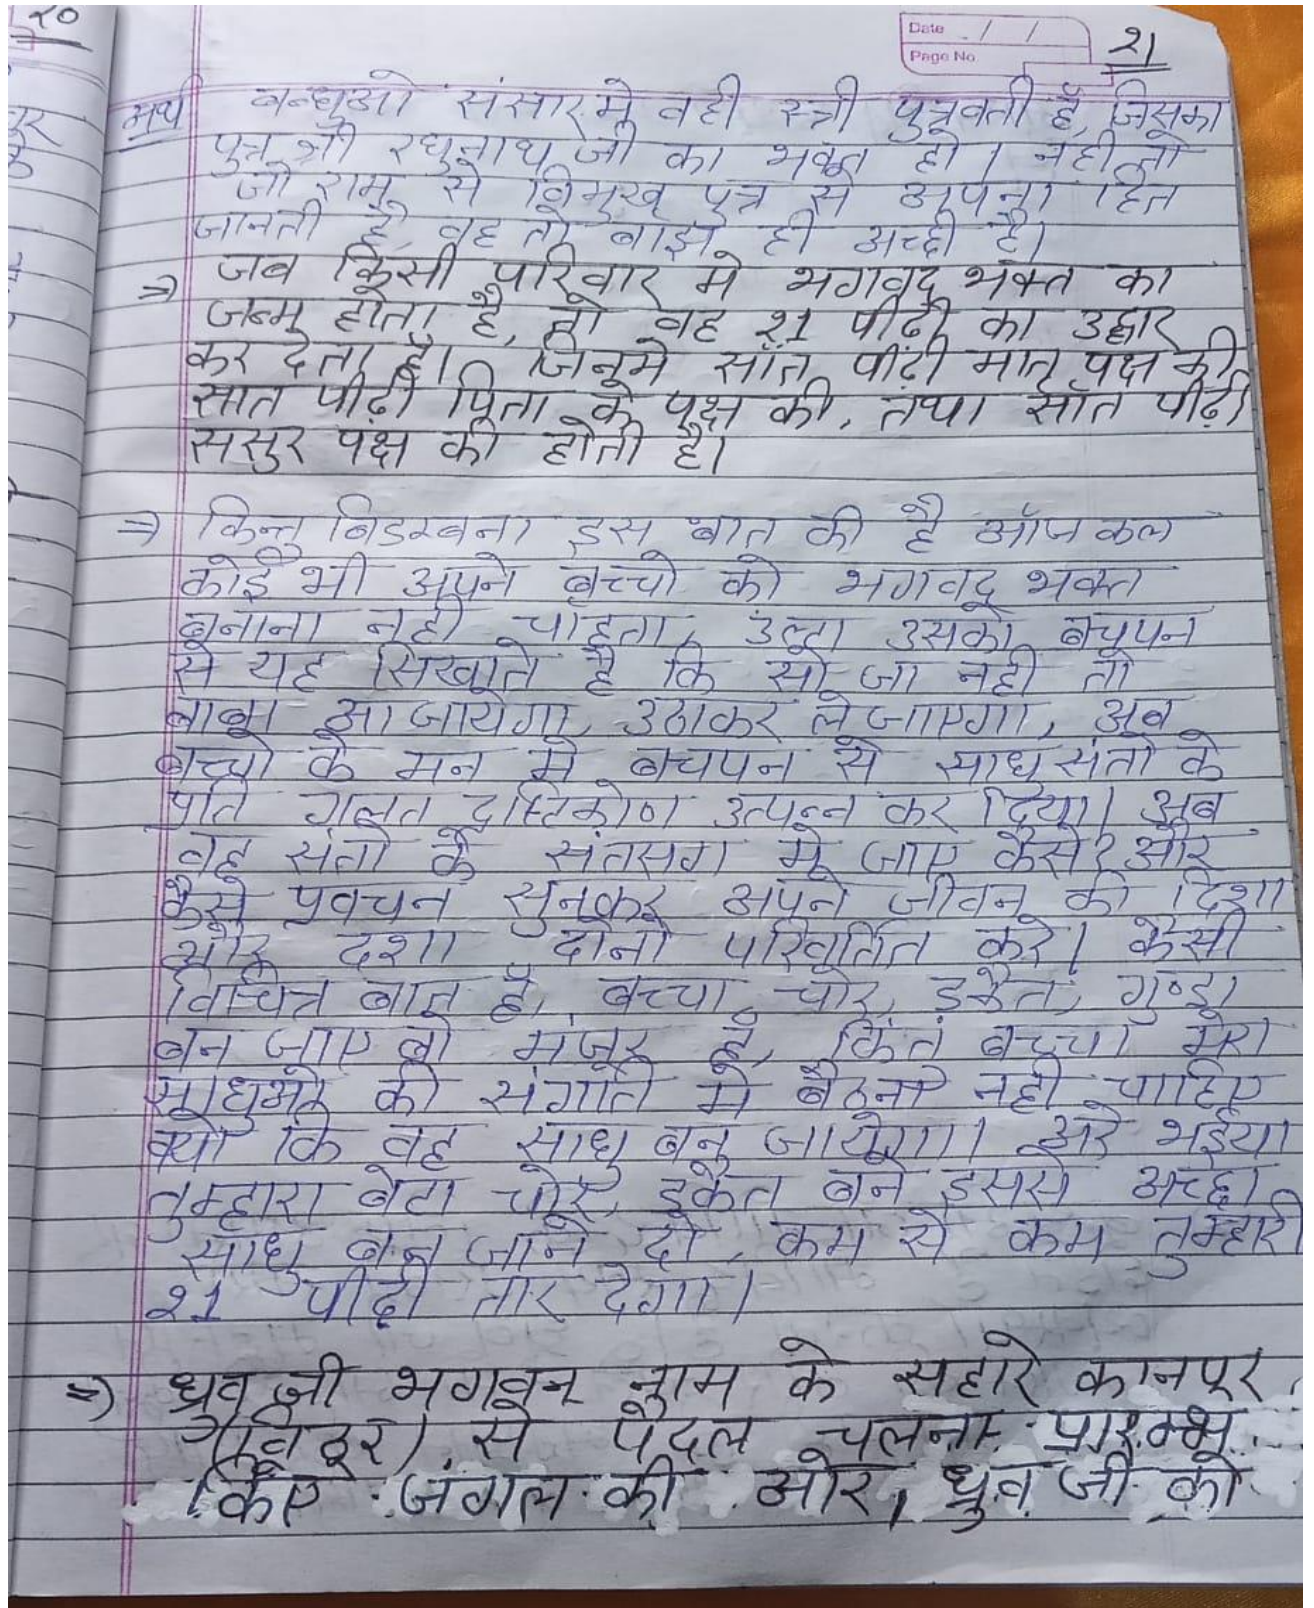 २०
Date / /
Page No
२१
अर्थ बन्धुओ संसार मे वही स्त्री पुत्रवती है, जिसका
पुत्र श्री रघुनाथ जी का भक्त हो । नही तो
जो राम से विमुख पुत्र से अपना हित
जानती है, वह तो बाझ ही अच्छी है।
⇒ जब किसी परिवार मे भगवद् भक्त का
जन्म होता है, तो वह २1 पीढी का उद्धार
कर देता है। जिनमे सात पीढी मातृ पक्ष की
सात पीढी पिता के पक्ष की, तथा सात पीढी
ससुर पक्ष की होती है।
⇒ किन्तु बिडम्बना इस बात की है ऑज कल
कोई भी अपने बच्चो को भगवद् भक्त
बनाना नही चाहता, उल्टा उसको बचपन
से यह सिखाते है कि सो जा नही तो
बाबा आ जायेगा, उठाकर ले जाएगा, अब
बच्चो के मन मे बचपन से साधु संतो के
प्रति गलत दृष्टिकोण उत्पन्न कर दिया। अब
वह संतो के संतसग मे जाए कैसे? और
कैसे प्रवचन सुनकर अपने जीवन की दिशा
और दशा दोनो परिवर्तित करे। कैसी
विचित्र बात है, बच्चा चोर, डकैत, गुण्डा
बन जाए वो मंजूर है, किंतं बच्चा मेरा
साधुओ की संगति मे बैठना नही चाहिए
क्यो कि वह साधु बन जायेगा। अरे भईया
तुम्हारा बेटा चोर, डकैत बने इससे अच्छा
साधु बन जाने दो, कम से कम तुम्हारी
२1 पीढी तार देगा।
⇒ ध्रुव जी भगवन् नाम के सहारे कानपुर
(विठूर) से पैदल चलना प्रारम्भ
किए जंगल की ओर, ध्रुव जी को